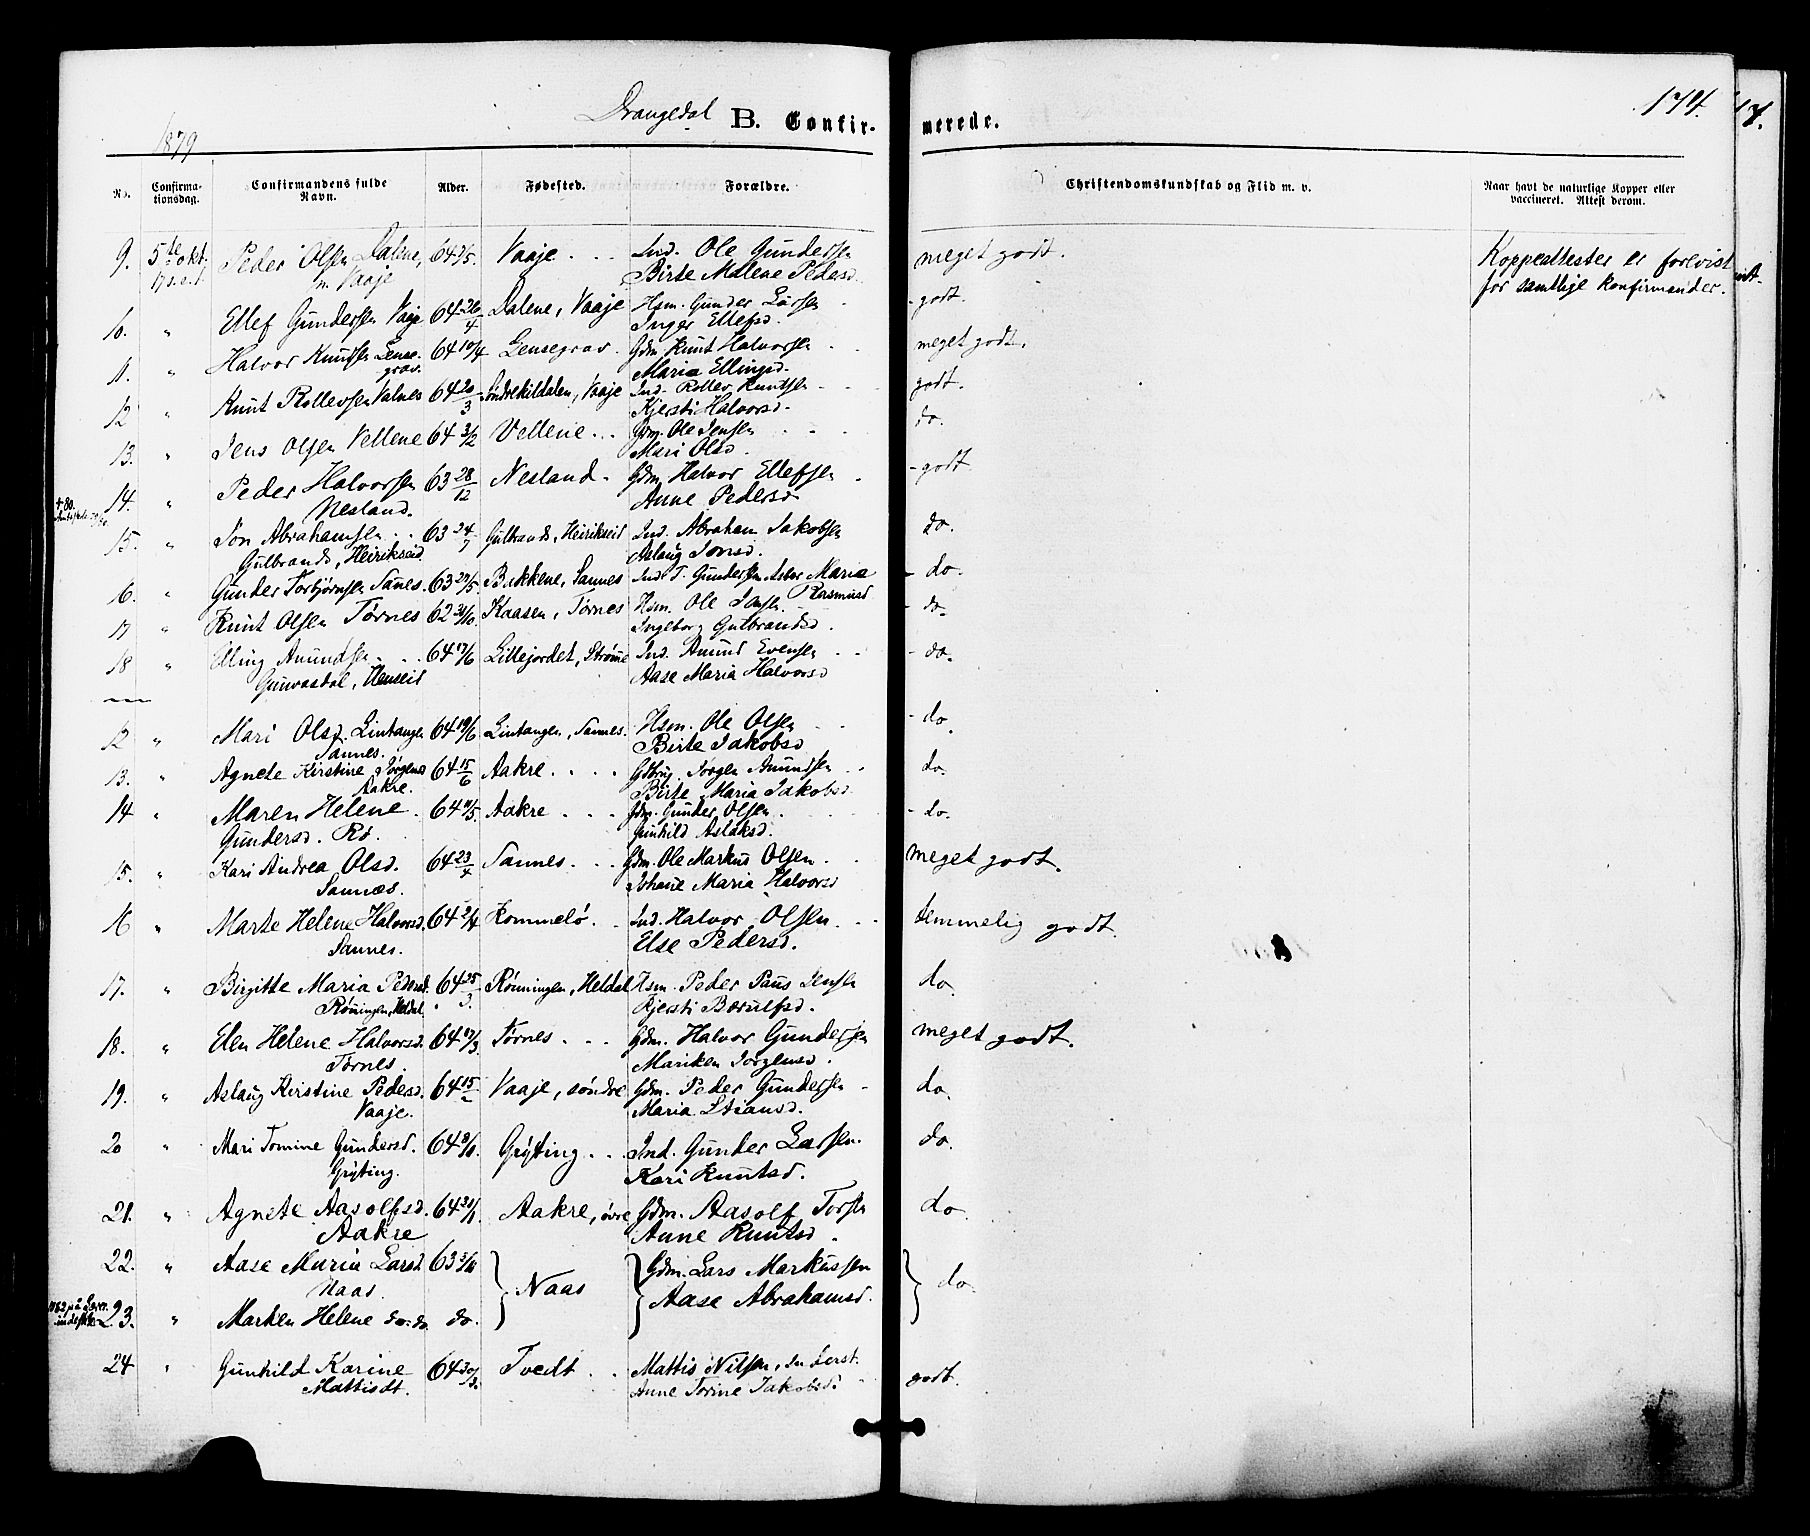 Drangedal B. Confir- merede. 174.
1879
No. Confirma-tionsdag. Confirmandens fulde Navn. Alder. Fødested. Forældre. Christendomskundskab og Flid m. v. Naar havt de naturlige Kopper eller vaccineret. Attest derom.
9. 5te okt. Peder Olsen Dalene, 64 Vaaje Ind. Ole Gundersen meget godt. Koppeattester er forevist
17 s.e.t. m. Vaaje Birte Malene Pedersd. for samtlige konfirmander.
10. " Ellef Gundersen Vaaje 64 26/4 Dalene, Vaaje Hsm. Gunder Larsen - godt.
Inger Ellefsd.
11. " Halvor Knutsen Lense- 64 10/4 Lensegrav. Gdm. Knut Halvorsen meget godt.
grav. Maria Ellingsd.
12 " Knut Rollevsen Valnes 64 20/3 Søndrekildalen, Vaaje Ind. Rollev Knutsen godt.
Kjersti Halvorsd. do.
13. " Jens Olsen Vellene 64 3/2 Vellene Gdm. Ole Jensen
Mari Olsd.
14. " Peder Halvorsen 63 28/12 Nesland Gdm. Halvor Ellefsen - godt
Nesland. Anne Pedersd
15. " Jon Abrahamsen 63 24/7 Gulbrands, Heirikseid Ind. Abraham Jakobsen do.
Gulbrands, Heirikseid Aslaug Jonsd.
16. " Gunder Torbjørnsen Sannes. 63 29/5 Bakkene, Sannes Ind. T. Gundersen Maria - do.
Rasmusd
17 " Knut Olsen Tørnes 62 31/10 Kaasen, Tørnes Hsm. Ole Jensen - do.
Ingeborg Gulbrandsd.
18 " Elling Amundsen 64 17/6 Lillejordet, Strømme Ind. Amund Evensen - do.
Gunvasdal, Henseid Aase Maria Halvorsd
12 " Mari Olsd. Lintangen 64 19/6 Lintangen, Sannes. Hsm. Ole Olsen - do.
Sannes. Birte Jakobsd
13. " Agnete Kirstine Jørgensd 64 15/6 Aakre Gdbrug. Jørgen Amundsen do.
Aakre. Birte Maria Jakobsd.
14 " Maren Helene 64 Aakre Gdm. Gunder Olsen - do.
Gundersd. Rø. Gunhild Aslaksd.
15. " Kari Andrea Olsd. 64 23/4 Sannes Gdm. Ole Markus Olsen meget godt.
Sannæs. Johane Maria Halvorsd
16 " Marte Helene Halvorsd. 64 2/4 Kommelø Ind. Halvor Olsen temmelig godt.
Sannes. Else Pedersd.
17. " Birgitte Maria Pedersd. 64 25/3 Rønningen, Heldal Hsm. Peder Paus Jensen do.
Rønningen, Heldal Kjersti Børulfsd.
18. " Elen Helene Halvorsd. 64 17/3 Tørnes Gdm. Halvor Gundersen meget godt.
Tørnes. Mariken Jørgensd.
19. " Aslaug Kirstine Pedersd. 64 15/2 Vaaje, søndre Gdm. Peder Gundersen do.
Vaaje. Maria Stiansd.
20 " Mari Tomine Gundersd. 64 Grøting Ind. Gunder Larsen do.
Grøting. Kari Knutsd.
21. " Agnete Aasolfsd. 64 Aakre, øvre Gdm. Aasolf Torsen do.
Aakre Anne Knutsd.
22. " Aase Maria Larsd. 63 Naas Gdm. Lars Markussen do.
Naas. Aase Abrahamsd.
23. " Marken Helene do. do. do.
24 " Gunhild Karine 64 Tvedt Mattis Nilsen, godt.
Mattisdt. Anne Torine Jakobsd.